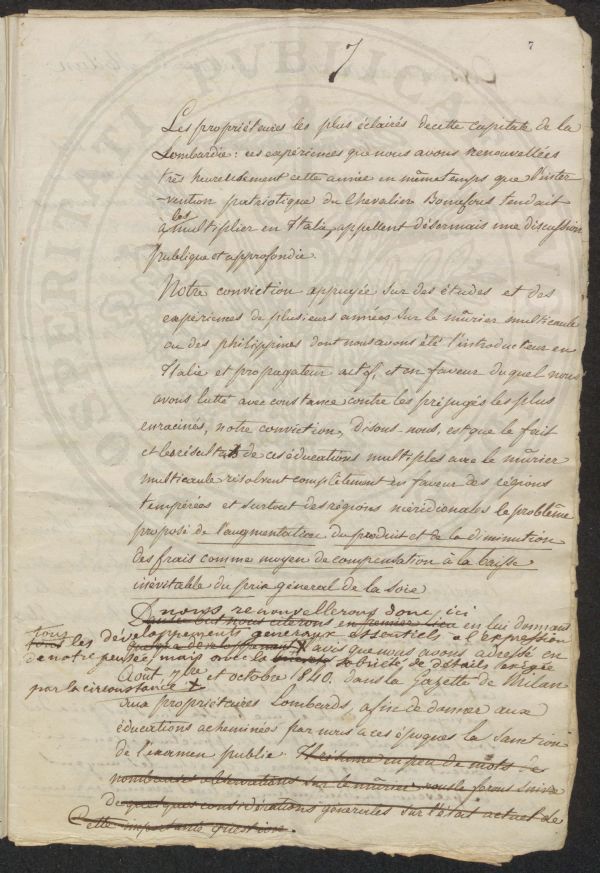 7
7
Les propriétaires les plus éclairés de cette capitale de la
Lombardie: ces expériences que nous avons renouvellées
très heureusement cette année en même temps que l'inter
-vention patriotique du Chevalier Bonafous tendait
à les multiplier en Italie, appellent désormais une discussion
publique et approfondie.
Notre conviction appuyée sur des études et des
expériences de plusieurs années sur le mûrier multicaule
ou des philippines dont nous avons été l'introducteur en
Italie et propagateur actif, et en faveur duquel nous
avons lutté avec constance contre les préjugés les plus
enracinés, notre conviction, disons-nous, est que le fait
et les résultats de ces éducations multiples avec le mûrier
multicaule résolvent complètement en faveur des régions
tempérées et surtout des régions méridionales le problême
proposé de l'augmentation du produit et de la diminution
des frais comme moyen de compensation à la baisse
inévitable du prix général de la soie
nous renouvellerons donc ici
nous citerons en premier lieu en lui donnant
tous les développements généraux essentiels a l'expression
avis que nous avons adressé en
de notre pensée, mais avec la sobriété de détails exigée
Aout, 7bre et octobre 1840. dans la Gazette de Milan
par la circonstance
aux propriétaires Lombards, afin de donner aux
éducations acheminées par nous a ces époques la sanction
de l'examen public en peu de mots de
nombreuses observations sur le mûrier, nous le ferons suivre
de quelques considérations générales sur l'état actuel de
Cette importante question.